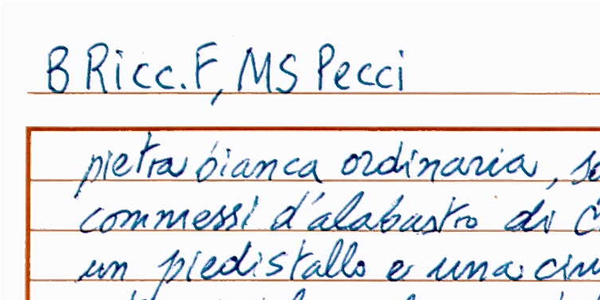 B Ricc. F, MS Pecci
pietra bianca ordinaria,
commessi d'alabastro di
un piedistallo e una